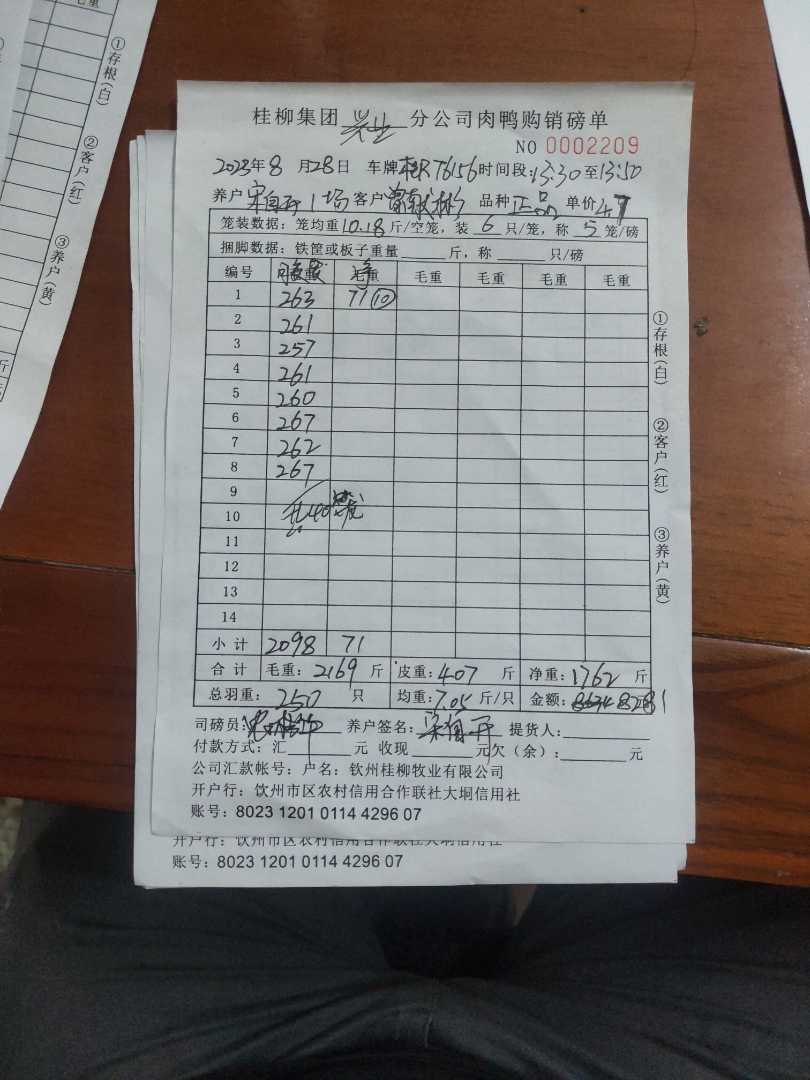 桂柳集团 兴业 分公司肉鸭购销磅单
NO 0002209
2023年8月28日 车牌 桂RT6156 时间段:13:30至13:50
养户 1场 客户 品种 正品 单价 4.7
笼装数据：笼均重10.18斤/空笼，装 6 只/笼，称 5 笼/磅
捆脚数据：铁筐或板子重量 斤，称 只/磅
编号 毛重 毛重 毛重 毛重 毛重
1 263 71⑩
2 261
3 257
4 261
5 260
6 267
7 262
8 267
9
10 共40笼
11
12
13
14
小计 2098 71
合计 毛重：2169 斤 皮重：407 斤 净重：1762 斤
总羽重： 250 只 均重：7.05 斤/只 金额： 8281
司磅员： 养户签名： 提货人：
付款方式：汇 元 收现 元欠（余）： 元
公司汇款帐号：户名：钦州桂柳牧业有限公司
开户行：钦州市区农村信用合作联社大垌信用社
账号：8023 1201 0114 4296 07
①存根(白)
②客户(红)
③养户(黄)
开户行：钦州市区农村信用合作联社大垌信用社
账号：8023 1201 0114 4296 07
毛重
①存根(白)
②客户(红)
③养户(黄)
斤